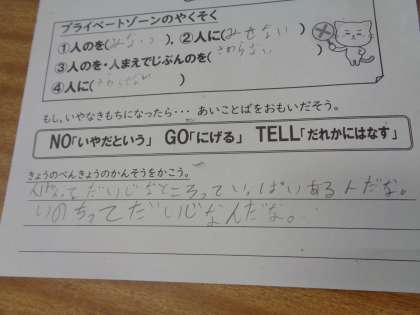 プライベートゾーンのやくそく
①人のを(みない)、②人に(みせない)
③人のを・人まえでじぶんのを(さわらない)
④人に(さわらせない)
もし、いやなきもちになったら・・・ あいことばをおもいだそう。
NO「いやだという」 GO「にげる」 TELL「だれかにはなす」
きょうのべんきょうのかんそうをかこう。
だいじなところっていっぱいあるんだな。
いのちってだいじなんだな。